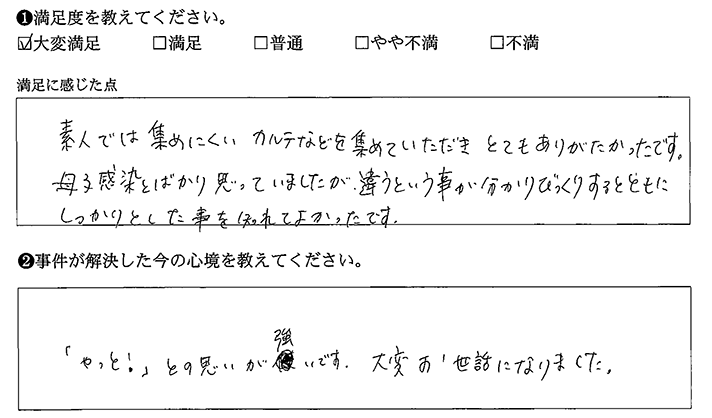 ❶満足度を教えてください。
☑大変満足 □満足 □普通 □やや不満 □不満
満足に感じた点
素人では集めにくいカルテなどを集めていただきとてもありがたかったです。
母子感染とばかり思っていましたが、違うという事が分かりびっくりするとともに
しっかりとした事を知れてよかったです。
❷事件が解決した今の心境を教えてください。
「やっと!」との思いが強いです。大変お世話になりました。